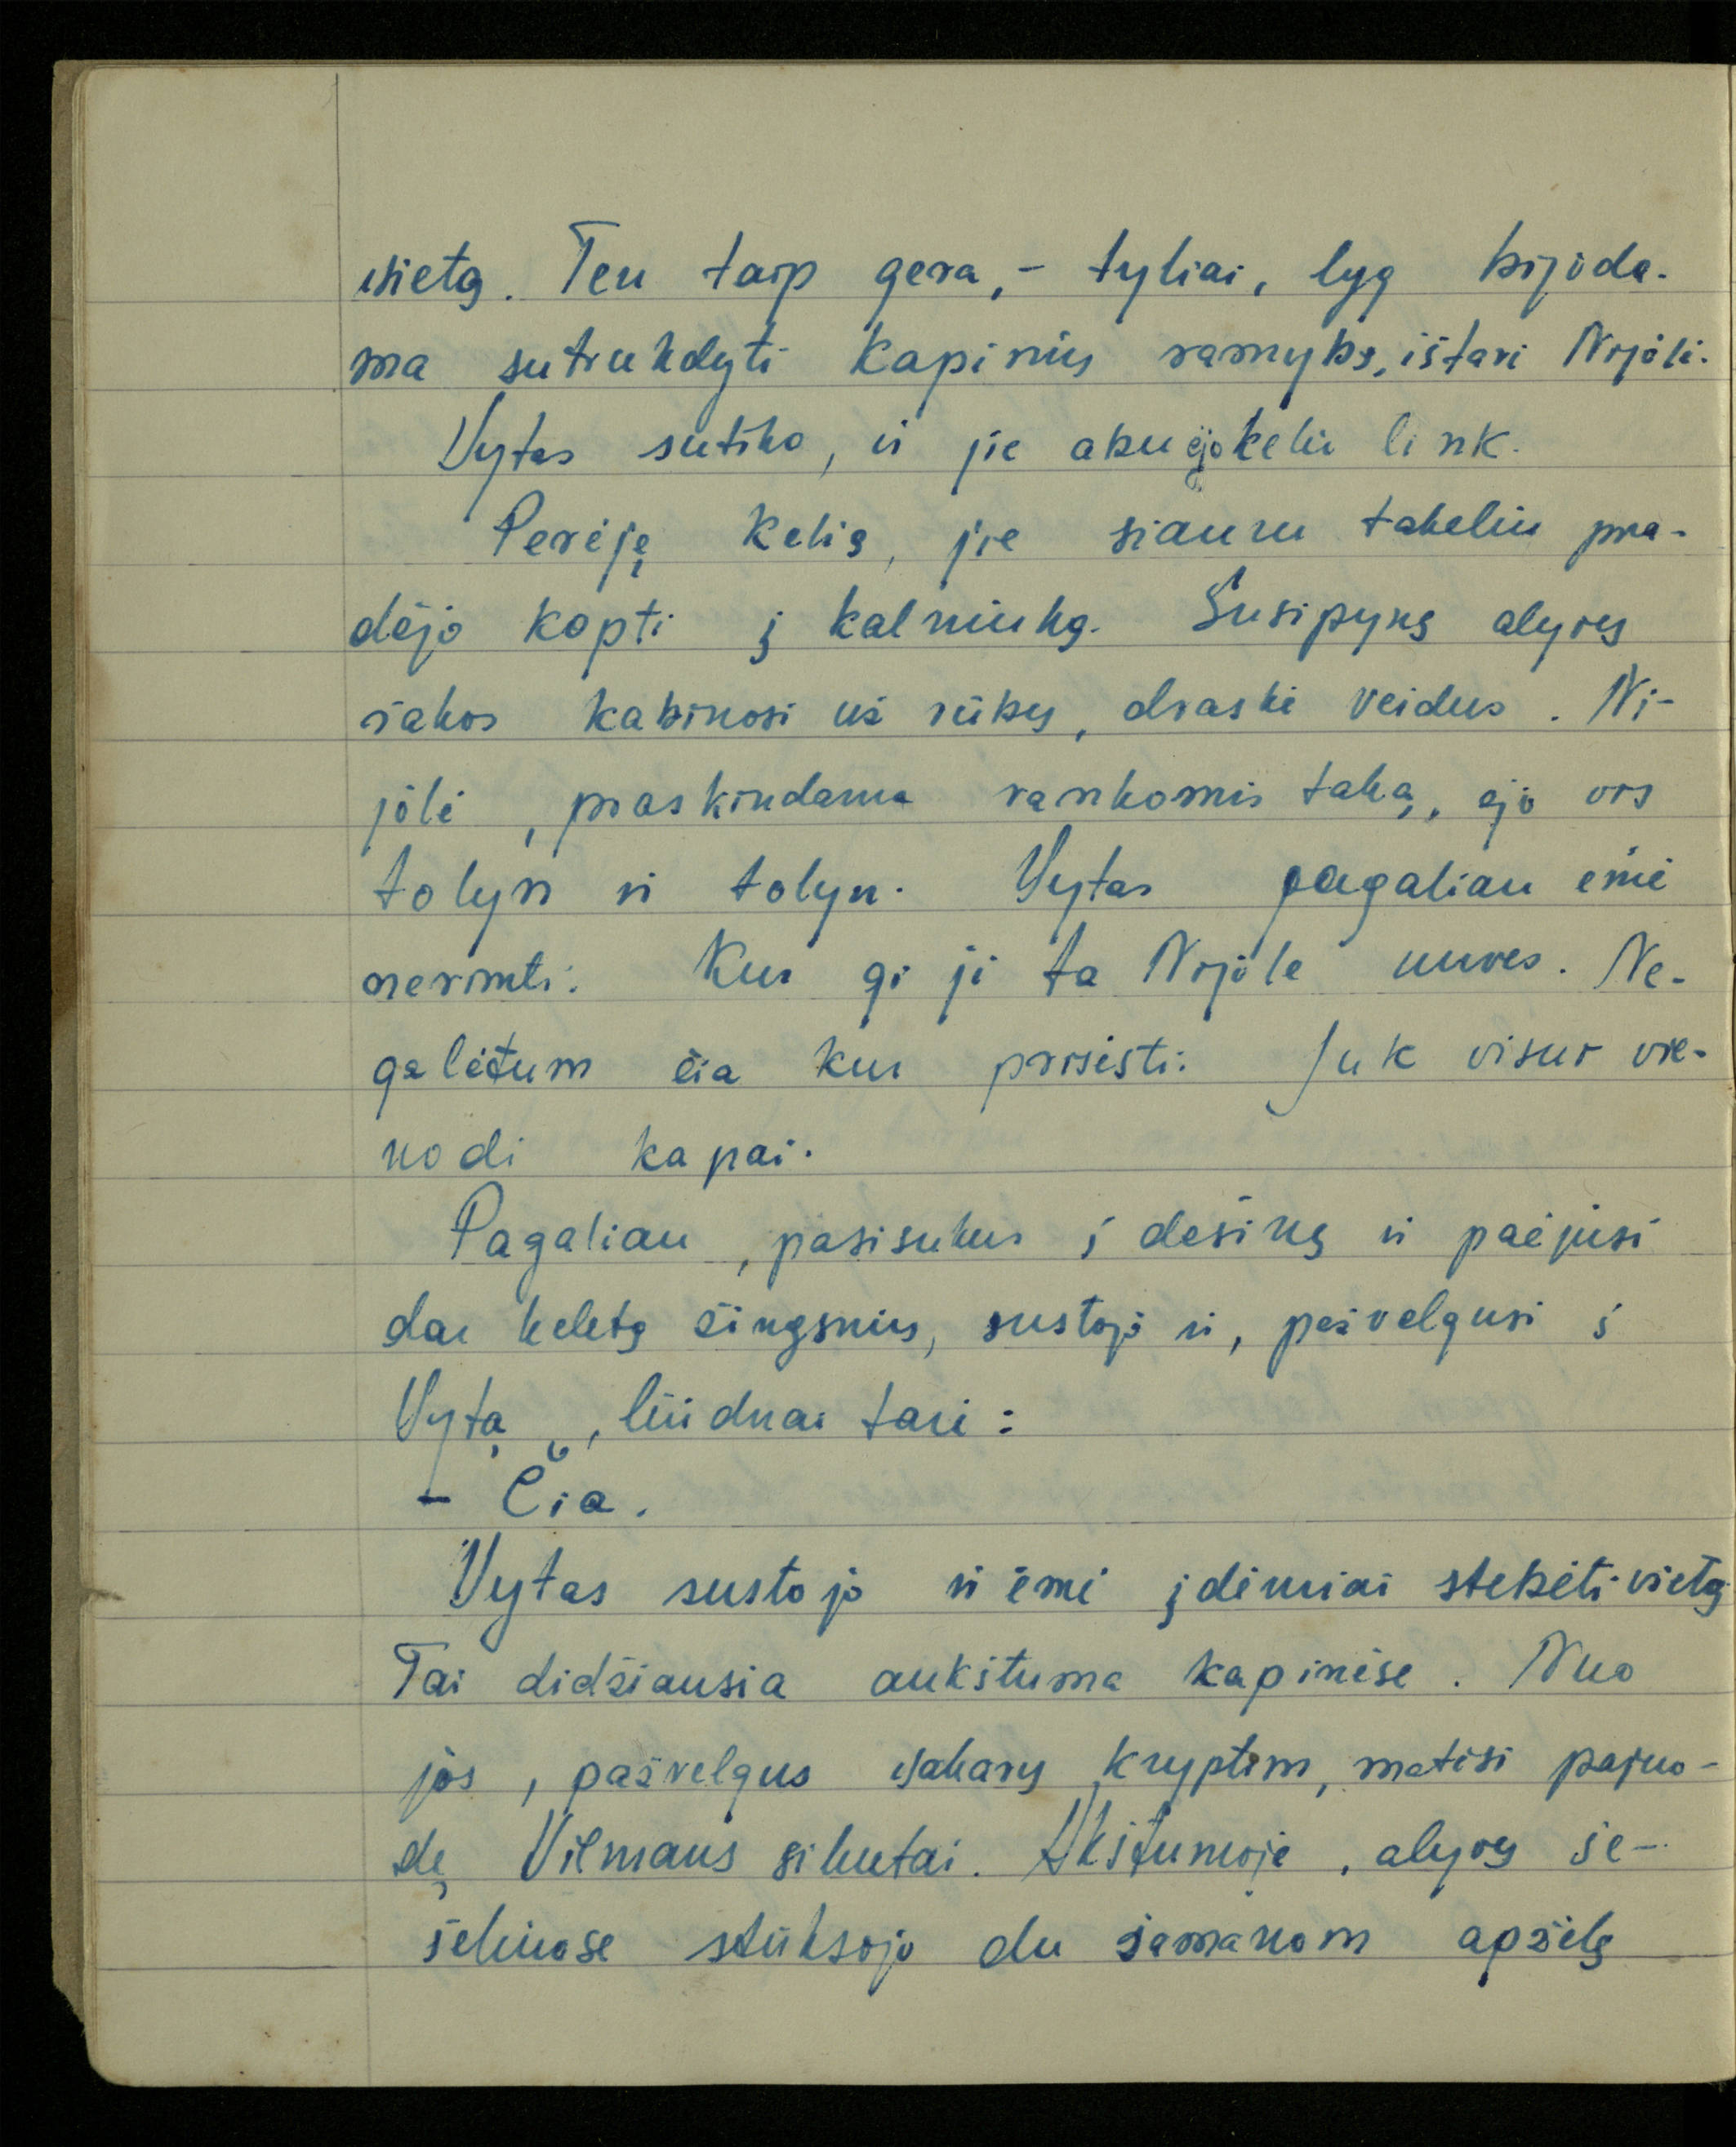 vietą. Ten taip gera, - tyliai, lyg bijoda-
ma sutrukdyti kapinių ramybę, ištarė Nijolė.
Vytas sutiko, ir jie abu ėjo keliu link.
Perėję kelią, jie siauru takeliu pra-
dėjo kopti į kalniuką. Susipynę alyvų
šakos kabinosi už rūbų, draskė veidus. Ni-
jolė, praskindama rankomis taką, ėjo vis
tolyn ir tolyn. Vytas pagaliau ėmė
nerimti: Kur gi ji ta Nijolė nuves. Ne-
galėtum čia kur prisėsti: Juk visur vie-
nodi kapai.
Pagaliau, pasisukus į dešinę ir paėjusi
dar keletą žingsnių, sustojo ir, pažvelgusi į
Vytą, liūdnai tarė:
- Čia.
Vytas sustojo ir ėmė įdėmiai stebėti vietą
Tai didžiausia aukštuma kapinėse. Nuo
jos, pažvelgus vakarų kryptim, matėsi pajuo-
dę Vilniaus siluetai. Aukštumoje, alyvų še-
šėliuose stūksojo du samanom apžėlę